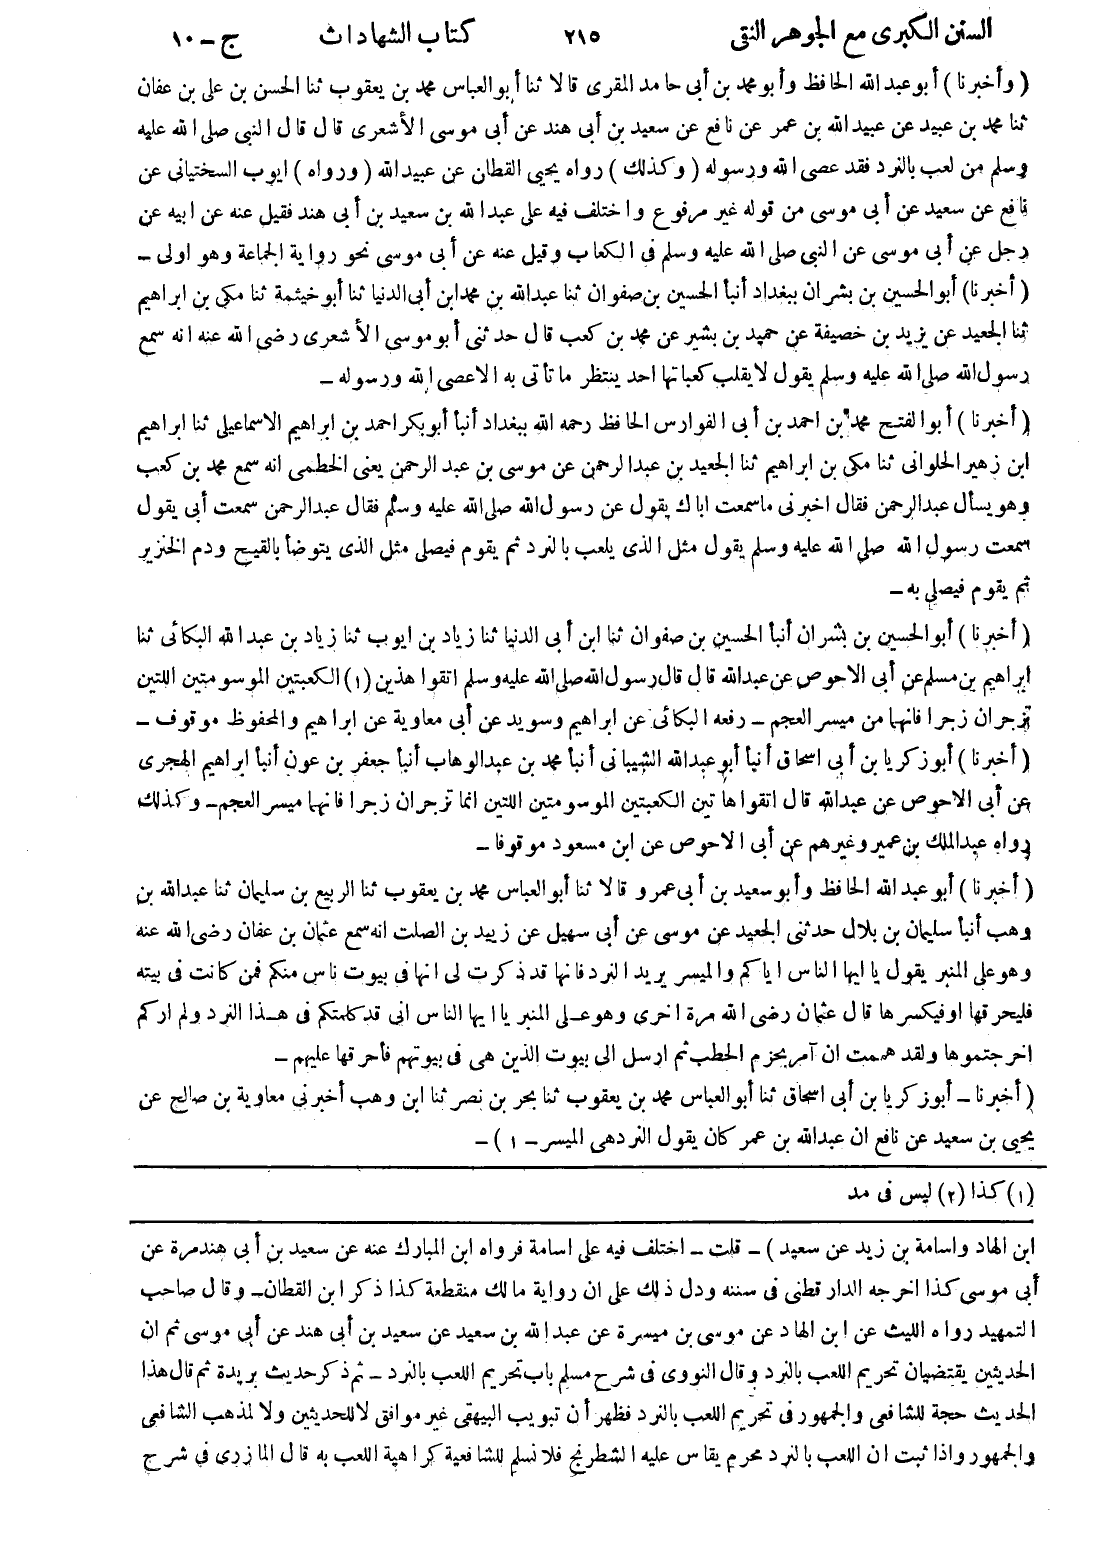 السنن الكبرى مع الجوهر النقى ٢١٥ كتاب الشهادات ج - ١٠
( وأخبرنا ) أبو عبد الله الحافظ وأبو محمد بن أبى حامد المقرى قالا ثنا أبو العباس محمد بن يعقوب ثنا الحسن بن على بن عفان
ثنا محمد بن عبيد عن عبيد الله بن عمر عن نافع عن سعيد بن أبى هند عن أبى موسى الأشعرى قال قال النبى صلى الله عليه
وسلم من لعب بالنرد فقد عصى الله ورسوله ( وكذلك ) رواه يحيى القطان عن عبيدالله ( ورواه ) ايوب السختيانى عن
نافع عن سعيد عن أبى موسى من قوله غير مرفوع واختلف فيه على عبد الله بن سعيد بن أبى هند فقيل عنه عن ابيه عن
رجل عن أبى موسى عن النبى صلى الله عليه وسلم فى الكعاب وقيل عنه عن أبى موسى نحو رواية الجماعة وهو اولى -
( أخبرنا) أبو الحسين بن بشران ببغداد أنبأ الحسين بن صفوان ثنا عبدالله بن محمد ابن أبى الدنيا ثنا أبو خيثمة ثنا مكى بن ابراهيم
ثنا الجعيد عن يزيد بن خصيفة عن حميد بن بشير عن محمد بن كعب قال حدثنى أبو موسى الأشعرى رضى الله عنه انه سمع
رسول الله صلى الله عليه وسلم يقول لا يقلب كعباتها احد ينتظر ما تأتى به الا عصى الله ورسوله -
( أخبرنا ) أبو الفتح محمد بن احمد بن أبى الفوارس الحافظ رحمه الله ببغداد أنبأ أبو بكر احمد بن ابراهيم الاسماعيلى ثنا ابراهيم
ابن زهير الحلوانى ثنا مكى بن ابراهيم ثنا الجعيد بن عبدالرحمن عن موسى بن عبد الرحمن يعنى الخطمى انه سمع محمد بن كعب
وهو يسأل عبدالرحمن فقال اخبرنى ما سمعت اباك يقول عن رسول الله صلى الله عليه وسلم فقال عبدالرحمن سمعت أبى يقول
سمعت رسول الله صلى الله عليه وسلم يقول مثل الذى يلعب بالنرد ثم يقوم فيصلى مثل الذى يتوضأ بالقيح ودم الخنزير
ثم يقوم فيصلى به -
( أخبرنا ) أبو الحسين بن بشران أنبأ الحسين بن صفوان ثنا ابن أبى الدنيا ثنا زياد بن ايوب ثنا زياد بن عبد الله البكائى ثنا
ابراهيم بن مسلم عن أبى الاحوص عن عبدالله قال قال رسول الله صلى الله عليه وسلم اتقوا هذين (١) الكعبتين الموسومتين اللتين
تزجران زجرا فانهما من ميسر العجم - رفعه البكائى عن ابراهيم وسويد عن أبى معاوية عن ابراهيم والمحفوظ موقوف -
( أخبرنا ) أبو زكريا بن أبى اسحاق أنبأ أبو عبدالله الشيبانى أنبأ محمد بن عبدالوهاب أنبأ جعفر بن عون أنبأ ابراهيم الهجرى
عن أبى الاحوص عن عبدالله قال اتقوا هاتين الكعبتين الموسومتين اللتين انما تزجران زجرا فانهما ميسر العجم - وكذلك
رواه عبدالملك بن عمير وغيرهم عن أبى الاحوص عن ابن مسعود موقوفا -
( أخبرنا ) أبو عبد الله الحافظ وأبو سعيد بن أبى عمرو قالا ثنا أبو العباس محمد بن يعقوب ثنا الربيع بن سليمان ثنا عبدالله بن
وهب أنبأ سليمان بن بلال حدثنى الجعيد عن موسى عن أبى سهيل عن زييد بن الصلت انه سمع عثمان بن عفان رضى الله عنه
وهو على المنبر يقول يا ايها الناس اياكم والميسر يريد النرد فانها قد ذكرت لى انها فى بيوت ناس منكم فمن كانت فى بيته
فليحرقها او فيكسرها قال عثمان رضى الله مرة اخرى وهو على المنبر يا ايها الناس انى قد كلمتكم فى هذا النرد ولم اركم
اخرجتموها ولقد هممت ان آمر بحزم الحطب ثم ارسل الى بيوت الذين هى فى بيوتهم فأحرقها عليهم -
( أخبرنا - أبو زكريا بن أبى اسحاق ثنا أبو العباس محمد بن يعقوب ثنا بحر بن نصر ثنا ابن وهب أخبرنى معاوية بن صالح عن
يحيى بن سعيد عن نافع ان عبدالله بن عمر كان يقول النرد هى الميسر - ١ ) -
(١) كذا (٢) ليس فى مد
ابن الهاد واسامة بن زيد عن سعيد ) - قلت - اختلف فيه على اسامة فرواه ابن المبارك عنه عن سعيد بن أبى هند مرة عن
أبى موسى كذا اخرجه الدار قطنى فى سننه ودل ذلك على ان رواية مالك منقطعة كذا ذكر ابن القطان - وقال صاحب
التمهيد رواه الليث عن ابن الهاد عن موسى بن ميسرة عن عبدالله بن سعيد عن سعيد بن أبى هند عن أبى موسى ثم ان
الحديثين يقتضيان تحريم اللعب بالنرد وقال النووى فى شرح مسلم باب تحريم اللعب بالنرد - ثم ذكر حديث بريدة ثم قال هذا
الحديث حجة للشافعى والجمهور فى تحريم اللعب بالنرد فظهر أن تبويب البيهقى غير موافق لا للحديثين ولا لمذهب الشافعى
والجمهور واذا ثبت ان اللعب بالنرد محرم يقاس عليه الشطرنج فلا نسلم للشافعية كراهية اللعب به قال المازرى فى شرح